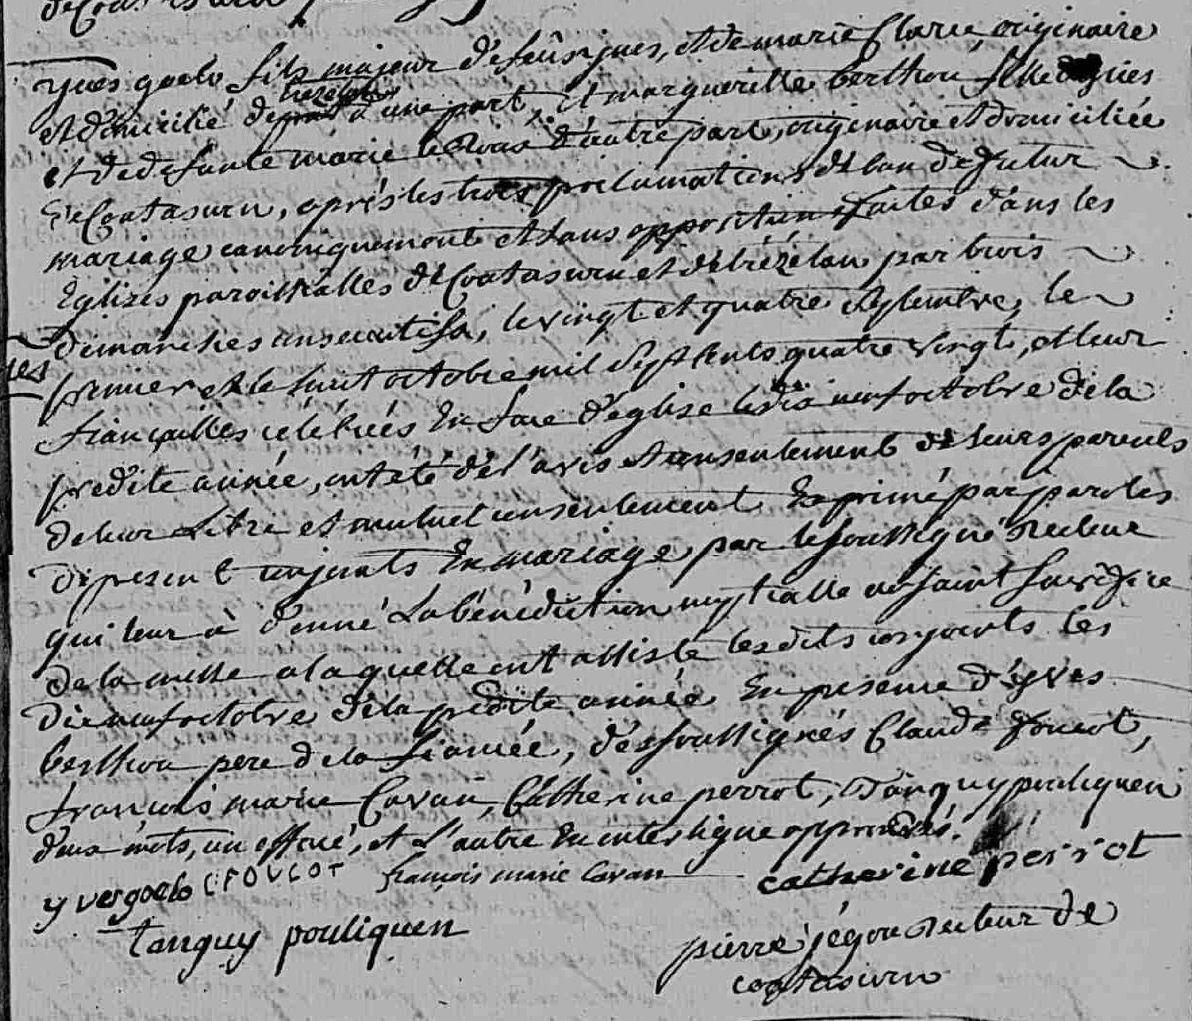 yves goelo fils majeur de feu yves, et de marie Clarec originaire
trezelan
et domicilié de d'une part, et marguerite berthou fille d'yves
et de defunte marie le Rous d'autre part, originaire et domiciliée
de Coatascurn, après les trois proclamations de ban de futur
mariage canoniquement et sans opposition faites dans les
Eglizes paroissialles de Coatascurn et de trézélan par trois
dimanches consecutifs, le vingt et quatre septembre, le
premier et le huit octobre mil sept cents quatre vingt, et leur
fiançailles célébrées En face d'eglise le dix neuf octobre de la
predite année, ont été de l'avis et consentement de leurs parents
de leur Libre et mutuel consentement Exprimé par paroles
de present conjoints En mariage par le soussigné Recteur
qui leur à donné La bénédiction nuptialle au saint sacrifice
de la messe a la quelle ont assisté les dits conjoints les
dix neuf octobre de la predite année En presence d'yves
berthou pere de la fiancée, des soussignés Claude foucot,
françois marie Cavan, Catherine perrot, Tanguy pouliquen
deux môts, un effacé, et L'autre En interligne approuvés.
yves goelo C FOUCOT françois marie Cavan catherine perrot
tanguy pouliquen
pierre jégou Recteur de
coatascurn